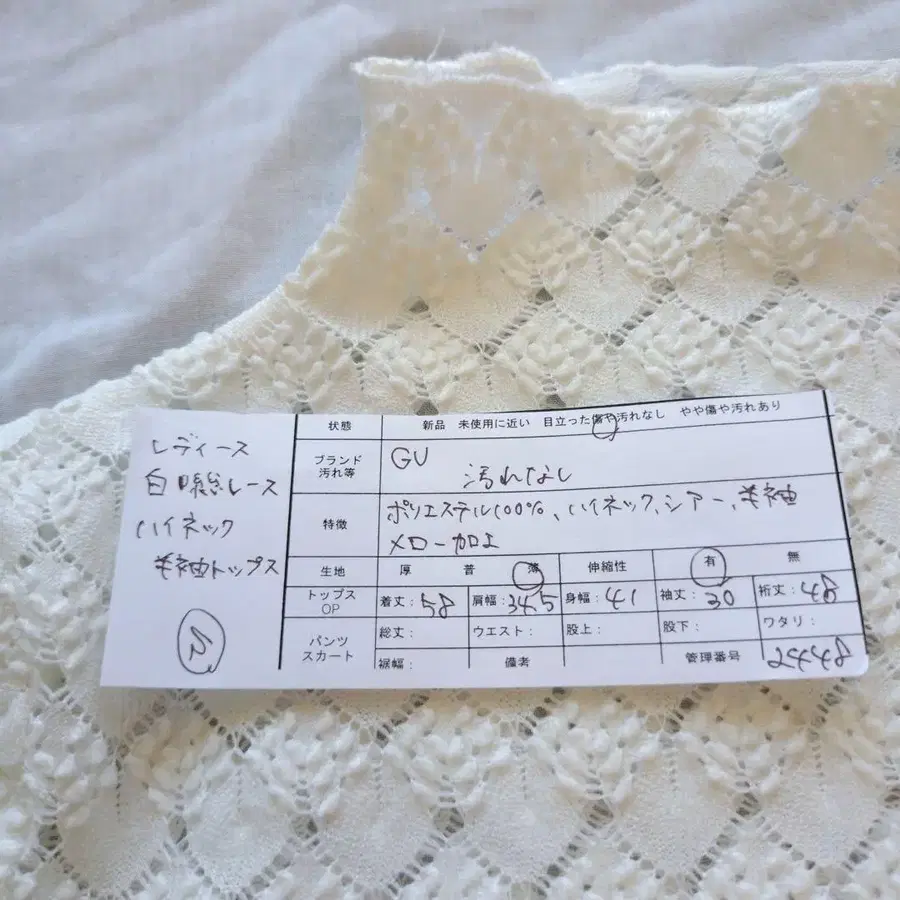 レディース
白 総レース
ハイネック
半袖トップス
状態 新品 未使用に近い 目立った傷や汚れなし やや傷や汚れあり
ブランド 汚れ等 GU
汚れなし
特徴 ポリエステル100%、ハイネック、シアー、半袖
メロー加工
生地 厚 普 薄 伸縮性 有 無
トップス OP 着丈:58 肩幅:34.5 身幅:41 袖丈:30 裄丈:48
パンツ スカート 総丈: ウエスト: 股上: 股下: ワタリ:
裾幅: 備考 管理番号 2448